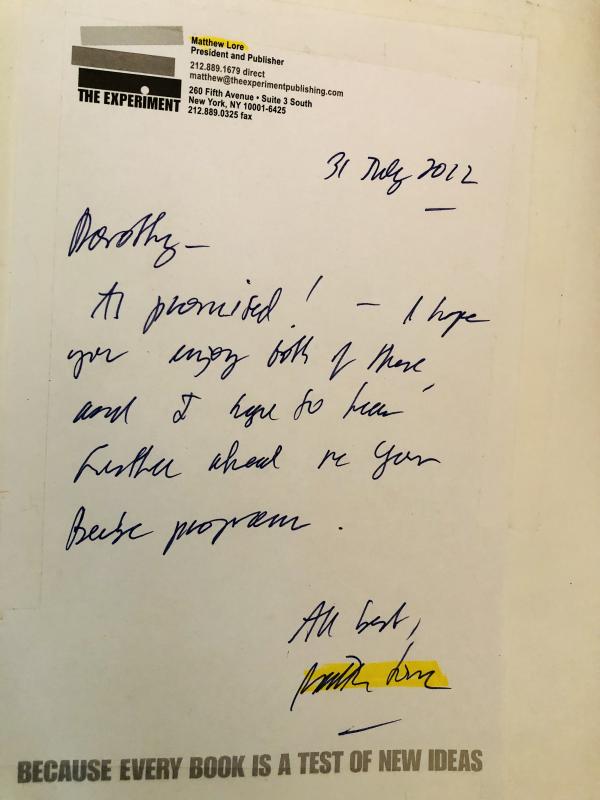 Matthew Lore
President and Publisher
212.889.1679 direct
matthew@theexperimentpublishing.com
260 Fifth Avenue • Suite 3 South
New York, NY 10001-6425
212.889.0325 fax
THE EXPERIMENT
31 July 2012
Dorothy—
As promised! — I hope
you enjoy both of these
and I hope to hear
further ahead re your
program.
All best,
Matthew Lore
BECAUSE EVERY BOOK IS A TEST OF NEW IDEAS